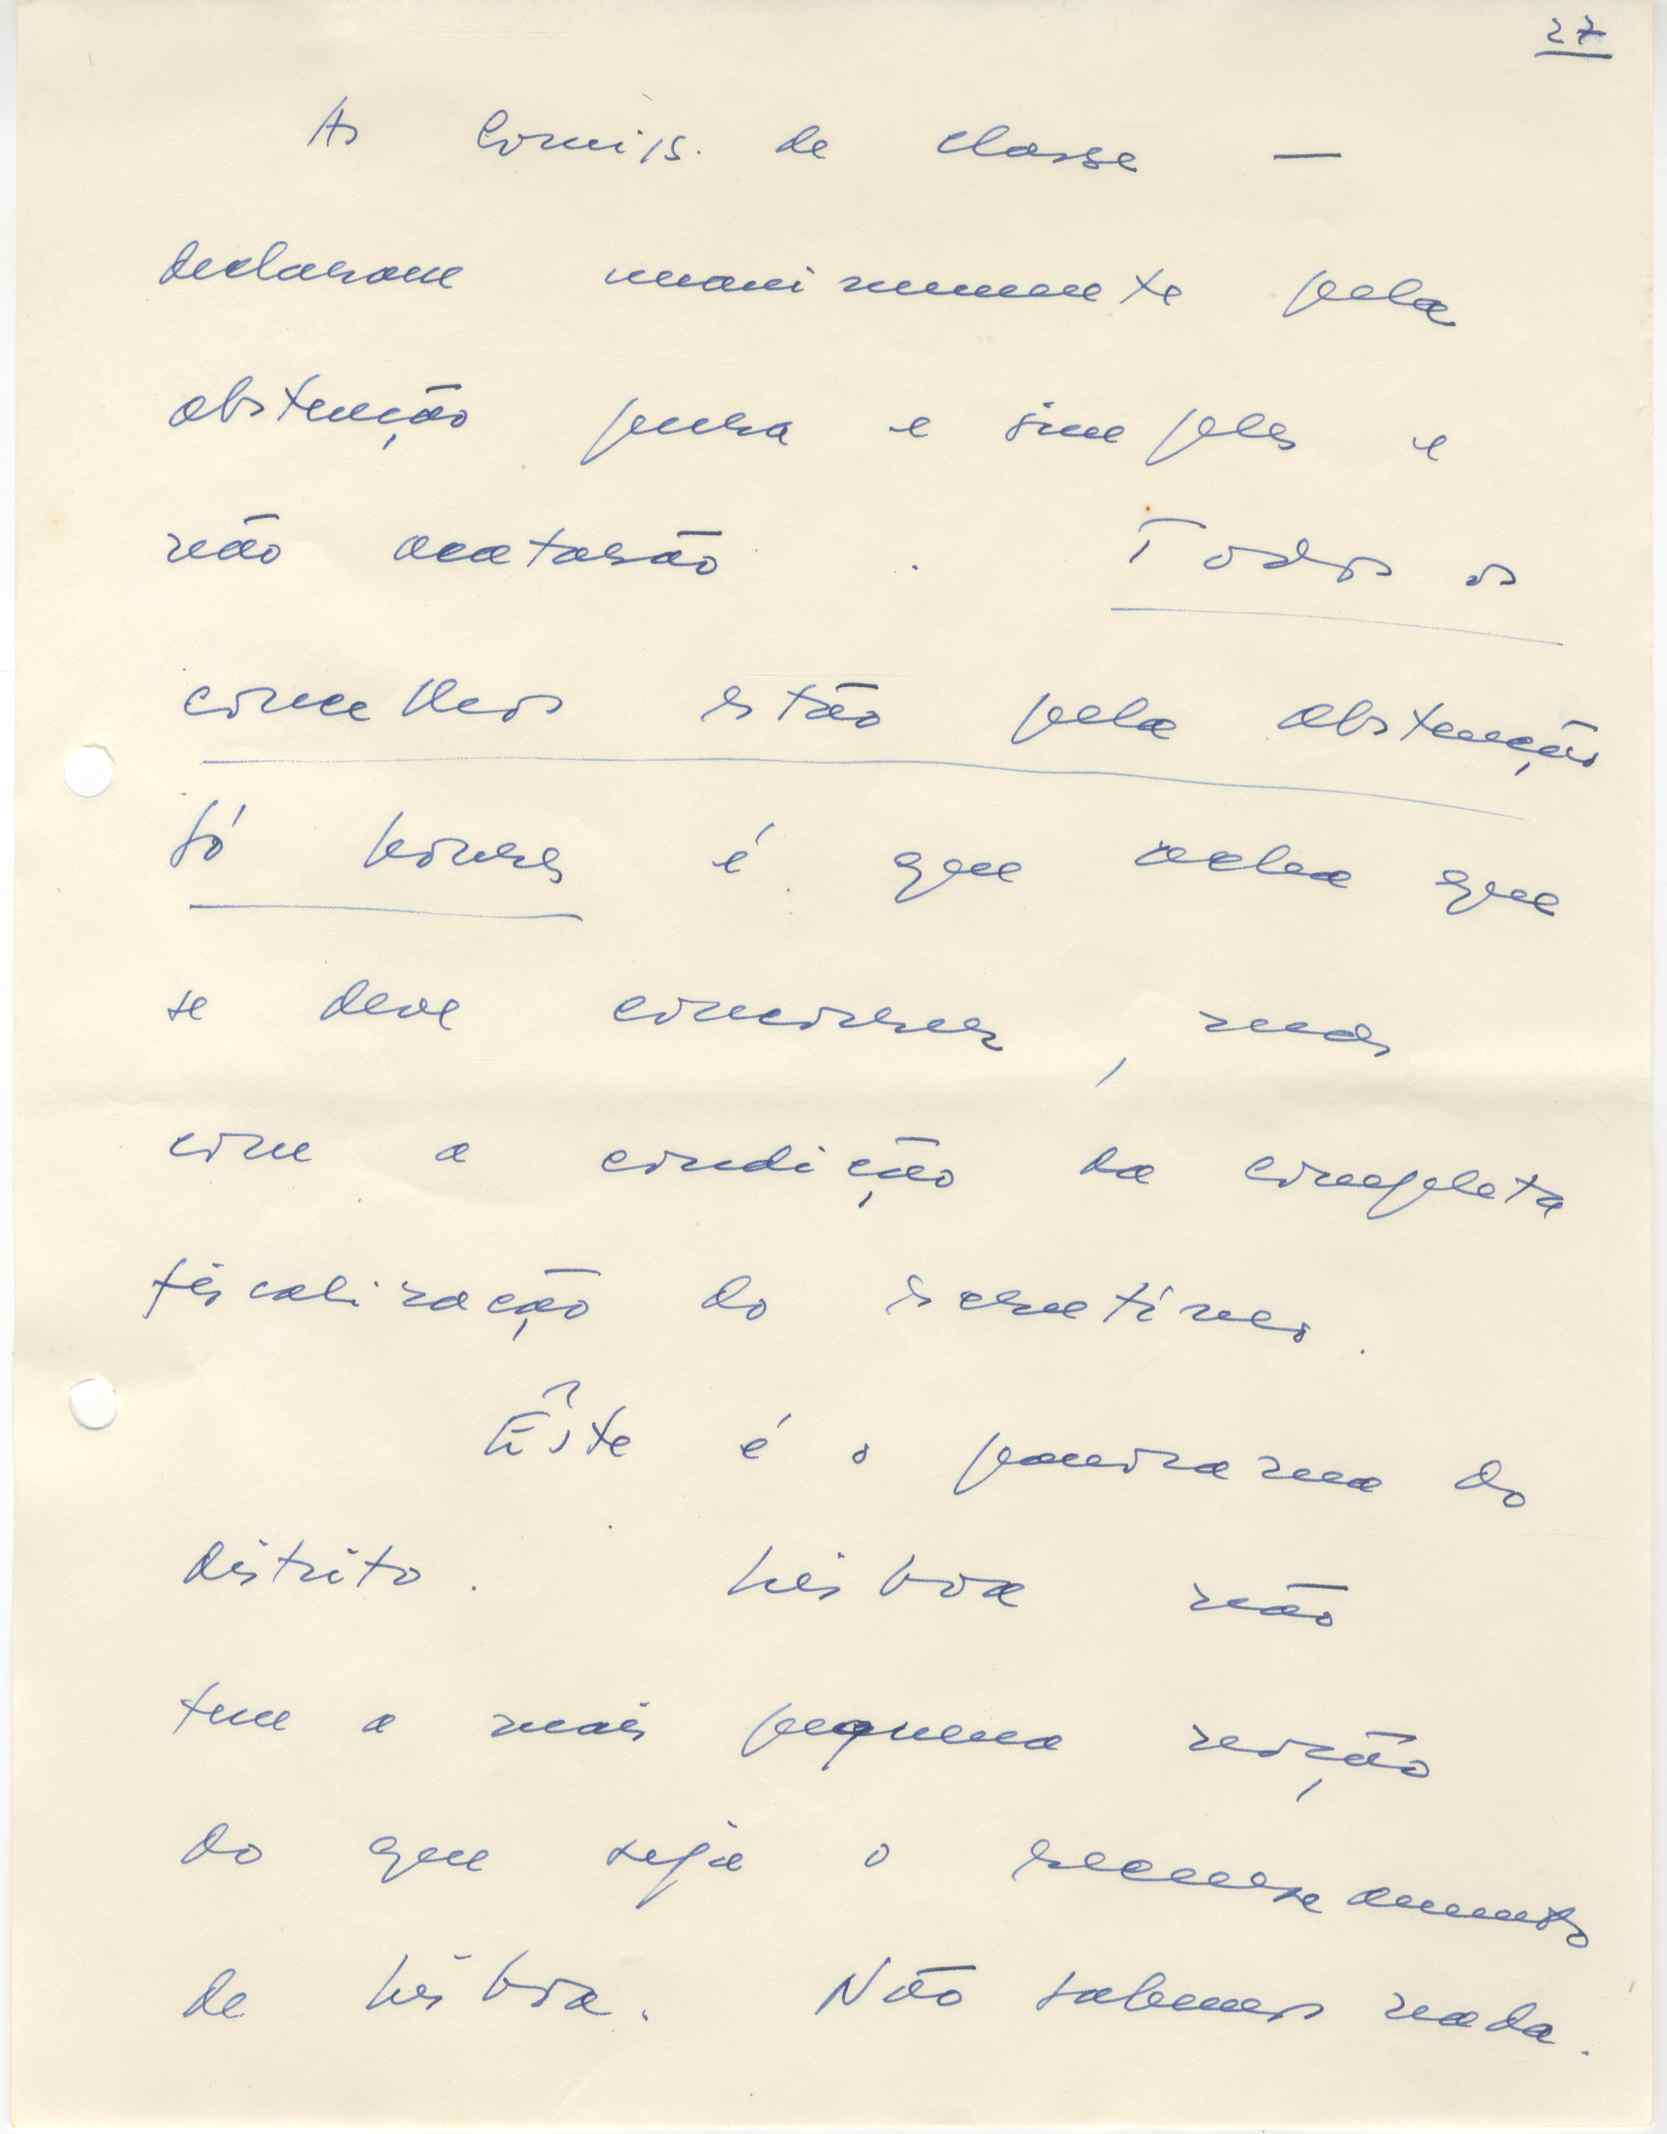 27
As Comis. de classe —
declaram unanimemente pela
abstenção pura e simples e
não acatarão . Todos os
concelhos estão pela abstenção
Só Loures é que acha que
se deve concorrer, mas
com a condição da completa
fiscalização do escrutíneo.
Êste é o panorama do
distrito. Lisboa não
tem a mais pequena noção
do que seja o recenseamento
de Lisboa. Não sabemos nada.